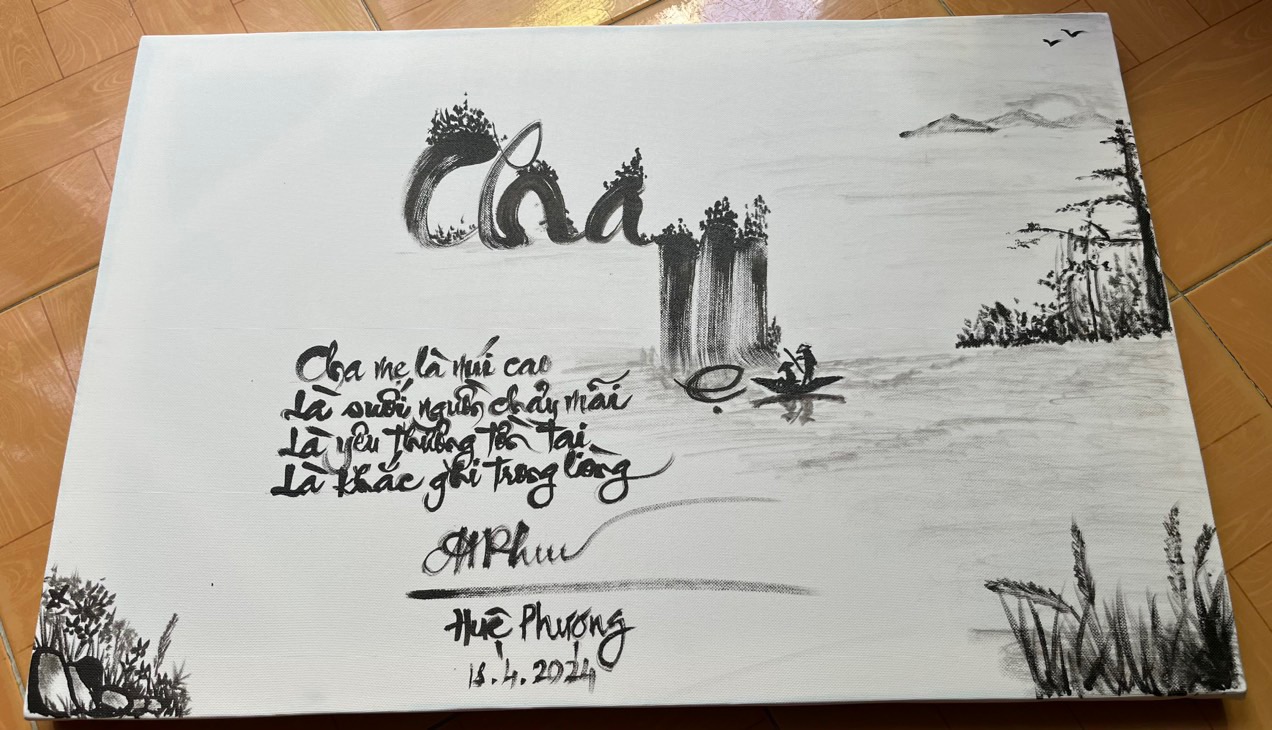 Cha
Mẹ
Cha mẹ là núi cao
Là suối nguồn chảy mãi
Là yêu thương tồn tại
Là khắc ghi trong lòng
Phu
Huệ Phương
13.4.2024